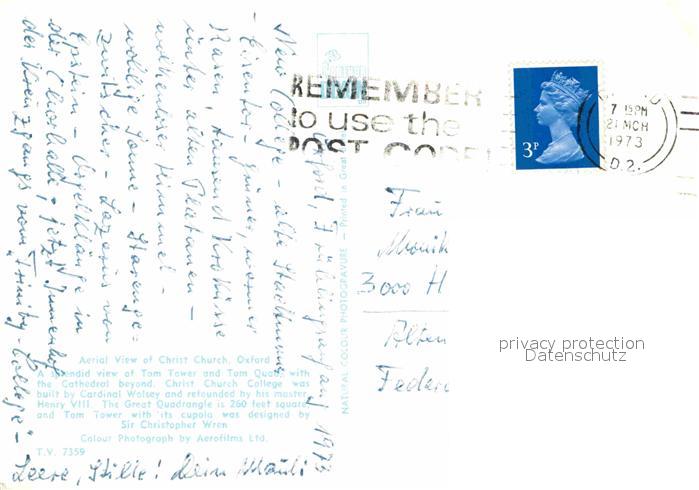 REMEMBER
to use the
POST CODE!
7 15PM
21 MCH
1973
D.2.
3P
Oxford, Frühlingsanfang 1973
New College - alte Stadtmauer
- Eisentor - Grüner, warmer
Rasen, tausend Krokusse
unter alten Platanen -
wolkenloser Himmel -
wollige Sonne - Starenge-
zwitscher - Lazarus von
Epstein - Orgelklänge in
der Chorhalle, jetzt Innenhof
des Kreuzgangs vom "Trinity-College" -
Leere, Stille! Dein Mauli
Frau
Monik
3000 H
Alten
Federa
privacy protection
Datenschutz
Aerial View of Christ Church, Oxford
A splendid view of Tom Tower and Tom Quad, with
the Cathedral beyond. Christ Church College was
built by Cardinal Wolsey and refounded by his master
Henry VIII. The Great Quadrangle is 260 feet square
and Tom Tower with its cupola was designed by
Sir Christopher Wren
Colour Photograph by Aerofilms Ltd.
T.V. 7359
NATURAL COLOUR PHOTOGRAVURE — Printed in Great